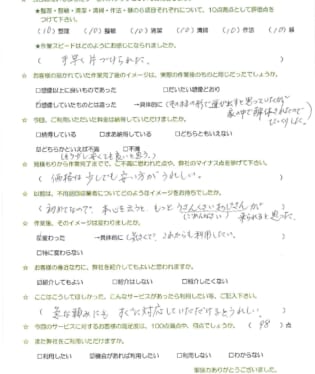 ★整理・整頓・清潔・清掃・作法・躾の6項目それぞれについて、10点満点として評価点を
つけて下さい。
(10) 整理 (10) 整頓 (10) 清潔 (10) 清掃 (10) 作法 (10) 躾
★作業スピードはどのようにお感じになられましたか。
( 手早く片づけられた。 )
☆ お客様の思い描かれていた作業完了後のイメージは、実際の作業後のものと同じだったでしょうか。
□想像以上に良いものであった □だいたい想像どおり
☑想像していたものとは違った →具体的に(そのままの形で運び出すと思っていたのが
家の中で解体されたので
びっくりした。)
☆ 今回、ご利用いただいた料金は納得していただけましたか。
□納得している □まあ納得している □どちらともいえない
☑どちらかといえば不満 □不満
(もう少し安くても良いと思う。)
☆ 見積もりから作業完了までで、ご不満に思われた点や、弊社のマイナス点を挙げて下さい。
( 価格は少しでも安い方がうれしい。 )
☆ 以前は、不用品回収業者についてどのようなイメージをお持ちでしたか。
( 初めてなので、本心を言うと、もっとうさんくさいおじさんが
(ごめんなさい) 来られると思った。 )
☆ 作業後、そのイメージは変わりましたか。
☑変わった →具体的に(気さくで、これからも利用したい。)
□特に変わらない
☆ お客様の身近な方に、弊社を紹介してもよいと思われますか。
☑紹介してもよい □紹介はしない □紹介したくない
☆ ここはこうしてほしかった。こんなサービスがあったら利用したい等、ご記入下さい。
( 急な頼みにもすぐに対応していただけるとうれしい。 )
☆ 今回のサービスに対するお客様の満足度は、100点満点中、何点でしょうか。 (98)点
☆ また弊社をご利用いただけますか。
□利用したい ☑機会があれば利用したい □利用しない □わからない
ご協力ありがとうございました。